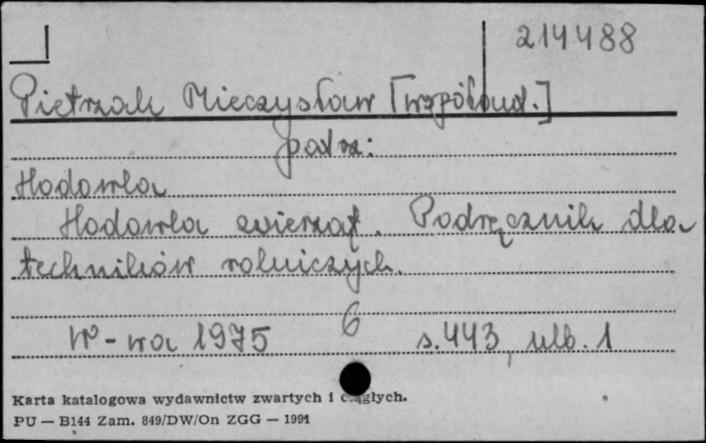 214488
Pietrzak Mieczysław [współaud.]
patrz:
Hodowla
Hodowla zwierząt. Podręcznik dla
techników rolniczych.
6
W-wa 1975 s. 443, nlb. 1
Karta katalogowa wydawnictw zwartych i ciągłych.
PU — B144 Zam. 849/DW/On ZGG — 1991